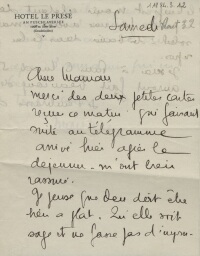 HOTEL LE PRESE
Samedi
Chère Maman
merci des deux petites cartes
reçues ce matin qui faisant
suite au télégramme
arrivé hier après le
déjeuner m'ont bien
rassuré.
Je pense que Deu doit être
bien à plat. Qu'elle soit
sage et ne fasse pas d'